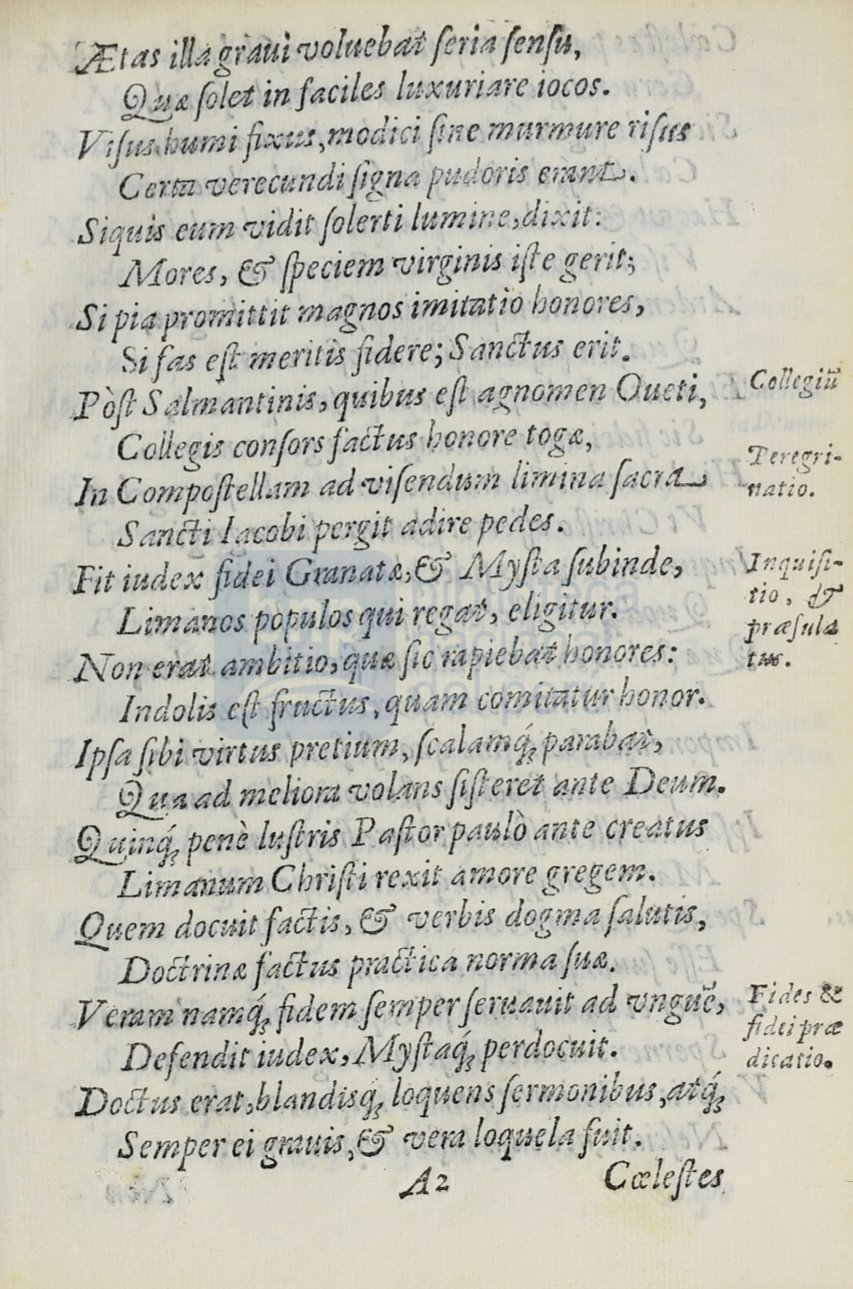 Ætas illa graui voluebat ſeria ſenſu,
Quæ ſolet in faciles luxuriare iocos.
Viſus humi fixus, modici ſine murmure riſus
Certa verecundi ſigna pudoris erant.
Siquis eum vidit ſolerti lumine, dixit:
Mores, & ſpeciem virginis iſte gerit;
Si pia promittit magnos imitatio honores,
Si fas eſt meritis fidere; Sanctus erit.
Pòſt Salmantinis, quibus eſt agnomen Oueti,
Collegiũ
Collegis conſors factus honore togæ,
In Compoſtellam ad viſendum limina ſacra
Peregri-
natio.
Sancti Iacobi pergit adire pedes.
Fit iudex fidei Granatæ, & Myſta ſubinde,
Inquiſi-
tio, &
præſula
tus.
Limanos populos qui regat, eligitur.
Non erat ambitio, quæ ſic rapiebat honores:
Indolis eſt fructus, quam comitatur honor.
Ipſa ſibi virtus pretium, ſcalamq́; parabat,
Qua ad meliora volans ſiſteret ante Deum.
Quinq́; penè luſtris Paſtor paulò ante creatus
Limanum Chriſti rexit amore gregem.
Quem docuit factis, & verbis dogma ſalutis,
Doctrinæ factus practica norma ſuæ.
Veram namq́; fidem ſemper ſeruauit ad vnguẽ,
Fides &
fidei præ
dicatio.
Defendit iudex, Myſtaq́; perdocuit.
Doctus erat, blandisq́; loquens ſermonibus, atq́;
Semper ei grauis, & vera loquela fuit.
A2
Cœleſtes